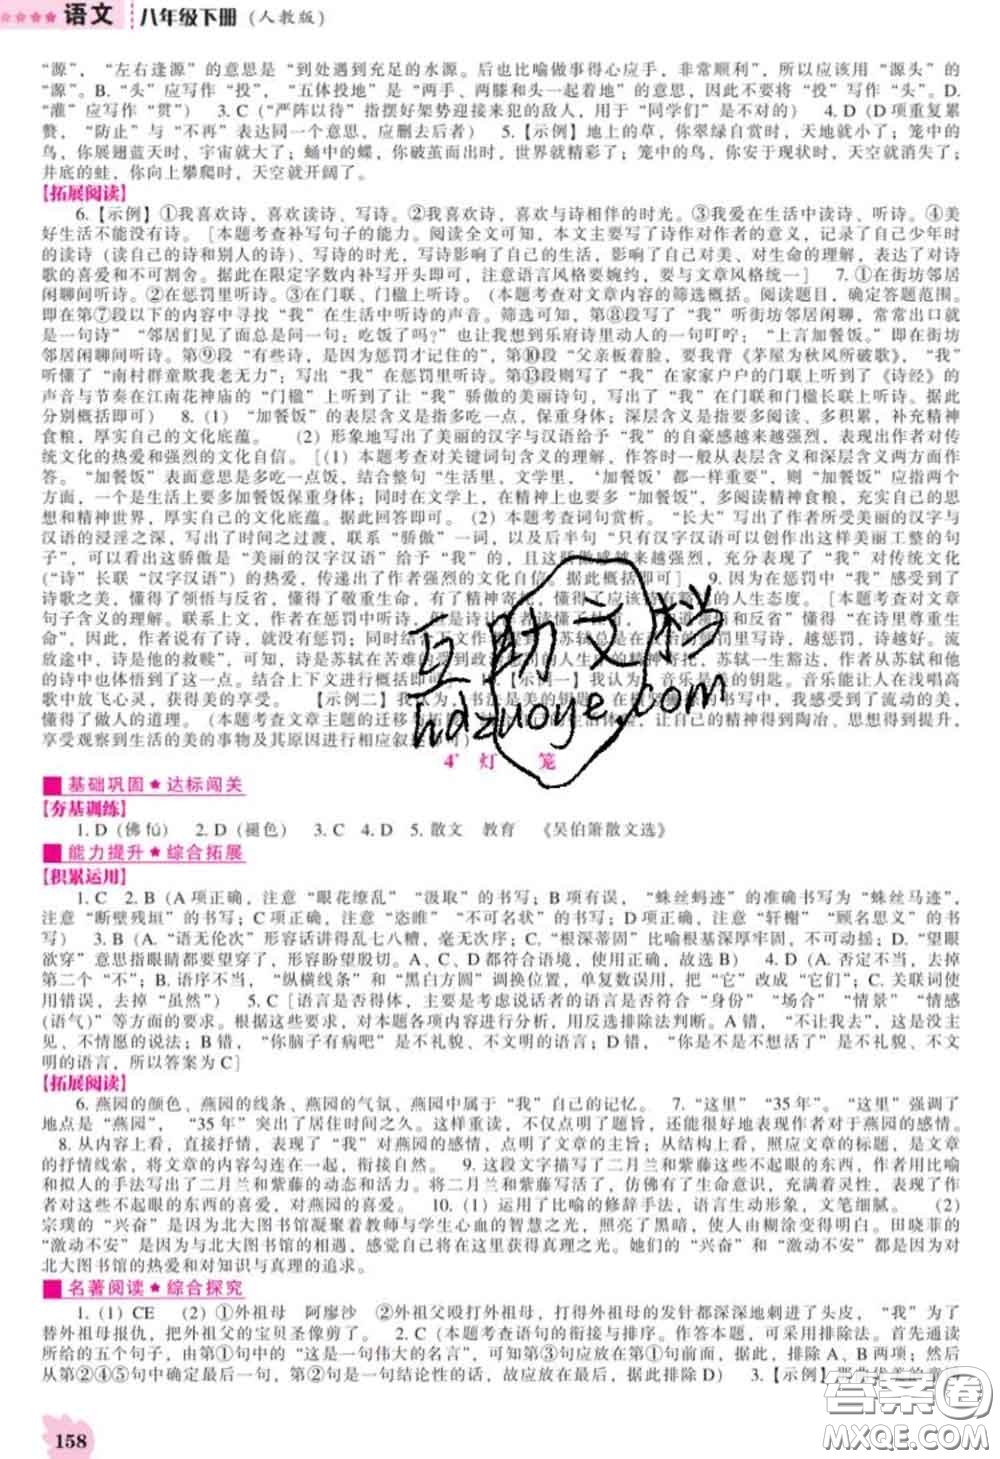 语文 八年级下册（人教版）
“源”，“左右逢源”的意思是“到处遇到充足的水源。后也比喻做事得心应手，非常顺利”，所以应该用“源头”的
“源”。B.“头”应写作“投”，“五体投地”是“两手、两膝和头一起着地”的意思，因此不要将“投”写作“头”。D.
“灌”应写作“贯”） 3. C（“严阵以待”指摆好架势迎接来犯的敌人，用于“同学们”是不对的） 4. D（D项重复累
赘，“防止”与“不再”表达同一个意思，应删去后者） 5.【示例】地上的草，你翠绿自赏时，天地就小了；笼中的
鸟，你展翅蓝天时，宇宙就大了；蛹中的蝶，你破茧而出时，世界就精彩了；笼中的鸟，你安于现状时，天空就消失了；
井底的蛙，你向上攀爬时，天空就开阔了。
【拓展阅读】
6.【示例】①我喜欢诗，喜欢读诗、写诗。②我喜欢诗，喜欢与诗相伴的时光。③我爱在生活中读诗、听诗。④美
好生活不能没有诗。［本题考查补写句子的能力。阅读全文可知，本文主要写了诗作对作者的意义，记录了自己少年时
的读诗（读自己的诗和别人的诗）、写诗的时光，写诗影响了自己的生活，影响了自己对美、对生命的理解，表达了对诗
歌的喜爱和不可割舍。据此在限定字数内补写开头即可，注意语言风格要婉约，要与文章风格统一］ 7. ①在街坊邻居
闲聊间听诗。②在惩罚里听诗。③在门联、门楹上听诗。（本题考查对文章内容的筛选概括。阅读题目，确定答题范围。
即在第⑦段以下的内容中寻找“我”在生活中听诗的声音。筛选可知，第⑧段写了“我”听街坊邻居闲聊，常常出口就
是一句诗”“邻居们见了面总是问一句：吃饭了吗？”也让我想到乐府诗里动人的一句叮咛；“上言加餐饭。”即在街坊
邻居闲聊间听诗。第⑨段“有些诗，是因为惩罚才记住的”，第⑩段“父亲板着脸，要我背《茅屋为秋风所破歌》，“我”
听懂了“南村群童欺我老无力”；写出“我”在惩罚里听诗。第⑬段则写了“我”在家家户户的门联上听到了《诗经》的
声音与节奏在江南花神庙的“门楹”上听到了让“我”骄傲的美丽诗句，写出了“我”在门联和门楹长联上听诗。据此
分别概括即可） 8.（1）“加餐饭”的表层含义是指多吃一点，保重身体；深层含义是指要多阅读、多积累，补充精神
食粮，厚实自己的文化底蕴。 （2）形象地写出了美丽的汉字与汉语给予“我”的自豪感越来越强烈，表现出作者对传
统文化的热爱和强烈的文化自信。［（1）本题考查对关键词句含义的理解，作答时一般从表层含义和深层含义两方面作
答。“加餐饭”表面意思是多吃一点饭，结合整句“生活里，文学里，‘加餐饭’都一样重要”，则“加餐饭”应指两个
方面，一个是生活上要多加餐饭保重身体；同时在文学上，在精神上也要多“加餐饭”，多阅读精神食粮，充实自己的思
想和精神世界，厚实自己的文化底蕴。据此回答即可。（2）本题考查词句赏析。“长大”写出了作者所受美丽的汉字与
汉语的浸淫之深，写出了时间之过渡，联系“骄傲”一词，以及后半句“只有汉字汉语可以创作出这样美丽工整的句
子”，可以看出这骄傲是“美丽的汉字汉语”给予“我”的，且这骄傲感越来越强烈，充分表现了“我”对传统文化
（“诗”长联“汉字汉语”）的热爱，传递出了作者强烈的文化自信。据此概括即可］ 9. 因为在惩罚中“我”感受到了
诗歌之美，懂得了领悟与反省，懂得了敬重生命，有了精神寄托，懂得了应该诗在豁达的人生态度。［本题考查对文章
句子含义的理解。联系上文，作者在惩罚中听诗，
因此，作者说有了诗，就没有惩罚；同时结合
放途中，诗是他的救赎”，可知，诗是苏轼在苦难
的诗中也体悟到了这一点。结合上下文进行概括即可］ 10.【示例一】我认为，音乐是美的钥匙。音乐能让人在浅唱高
歌中放飞心灵，获得美的享受。 【示例二】我认为，书法是美的钥匙。
懂得了做人的道理。（本题考查文章主题的迁移与拓展。
享受观察到生活的美的事物及其原因进行相应叙述即可）
4* 灯 笼
基础巩固★达标闯关
【夯基训练】
1. D（佛 fú） 2. D（褪色） 3. C 4. D 5. 散文 教育 《吴伯箫散文选》
能力提升★综合拓展
【积累运用】
1. C 2. B（A项正确，注意“眼花缭乱”“汲取”的书写；B项有误，“蛛丝蚂迹”的准确书写为“蛛丝马迹”，
注意“断壁残垣”的书写；C项正确，注意“恣睢”“不可名状”的书写；D项正确，注意“轩榭”“顾名思义”的书
写） 3. B（A.“语无伦次”形容话讲得乱七八糟，毫无次序；C.“根深蒂固”比喻根基深厚牢固，不可动摇；D.“望眼
欲穿”意思指眼睛都要望穿了，形容盼望殷切。A、C、D都符合语境，使用正确，故选B） 4. D（A. 否定不当，去掉
第二个“不”；B. 语序不当，“纵横线条”和“黑白方圆”调换位置，单复数误用，把“它”改成“它们”；C. 关联词使
用错误，去掉“虽然”） 5. C［语言是否得体，主要是考虑说话者的语言是否符合“身份”“场合”“情景”“情感
（语气）”等方面的要求。根据这些要求，对本题各项内容进行分析，用反选排除法判断。A错，“不让我去”，这是没主
见、不情愿的说法；B错，“你脑子有病吧”是不礼貌、不文明的语言；D错，“你是不是不想活了”是不礼貌、不文
明的语言，所以答案为C］
【拓展阅读】
6. 燕园的颜色、燕园的线条、燕园的气氛、燕园中属于“我”自己的记忆。 7.“这里”“35年”。“这里”强调了
地点是“燕园”，“35年”突出了居住时间之久。这样重读，不仅点明了题旨，还能很好地表现作者对于燕园的感情。
8. 从内容上看，直接抒情，表现了“我”对燕园的感情，点明了文章的主旨；从结构上看，照应文章的标题，是文章
的抒情线索，将文章的内容勾连在一起，衔接自然。 9. 这段文字描写了二月兰和紫藤这些不起眼的东西，作者用比喻
和拟人的手法写出了二月兰和紫藤的动态和活力。将二月兰和紫藤写活了，仿佛有了生命意识，充满着灵性，表现了作
者对这些不起眼的东西的喜爱，对燕园的喜爱。 10.（1）运用了比喻的修辞手法，语言生动形象，文笔细腻。 （2）
宗璞的“兴奋”是因为北大图书馆凝聚着教师与学生心血的智慧之光，照亮了黑暗，使人由糊涂变得明白。田晓菲的
“激动不安”是因为与北大图书馆的相遇，感觉自己将在这里获得真理之光。她们的“兴奋”和“激动不安”都是因为对
北大图书馆的热爱和对知识与真理的追求。
名著阅读★综合探究
1.（1）CE （2）①外祖母 阿廖沙 ②外祖父殴打外祖母，打得外祖母的发针都深深地刺进了头皮，“我”为了
替外祖母报仇，把外祖父的宝贝圣像剪了。 2. C（本题考查语句的衔接与排序。作答本题，可采用排除法。首先通读
所给的五个句子，由第①句中的“这是一句伟大的名言”，可知第③句应放在第①句前面，据此，排除A、B两项；然后
从第②④⑤句中确定最后一句，第②句是一句结论性的话，故应放在最后，据此排除D） 3.【示例】
158
互助文档
hdzuoye.com
答案圈
MXQE.COM